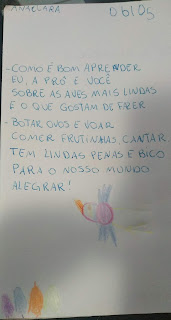 ANA CLARA 06/05
- COMO É BOM APRENDER
EU, A PRÓ E VOCÊ
SOBRE AS AVES MAIS LINDAS
E O QUE GOSTAM DE FAZER
- BOTAR OVOS E VOAR
COMER FRUTINHAS, CANTAR
TEM LINDAS PENAS E BICO
PARA O NOSSO MUNDO
ALEGRAR!